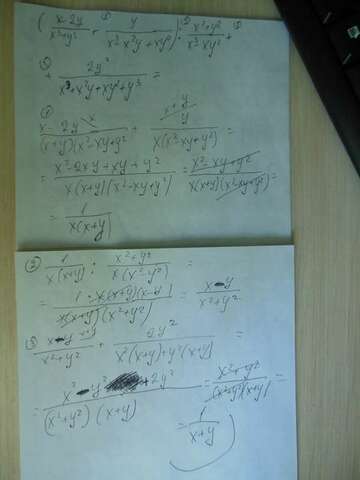 ( (x-2y)/(x³+y³) + y/(x³-x²y+xy²) ) : (x²+y²)/(x³-xy²) +
+ 2y²/(x³+x²y+xy²+y³) =
① (x-2y)/((x+y)(x²-xy+y²)) + y/(x(x²-xy+y²)) =
= (x²-2xy+xy+y²)/(x(x+y)(x²-xy+y²)) = (x²-xy+y²)/(x(x+y)(x²-xy+y²)) =
= 1/(x(x+y))
② 1/(x(x+y)) : (x²+y²)/(x(x²-y²)) =
= (1·x(x+y)(x-y))/(x(x+y)(x²+y²)) = (x-y)/(x²+y²)
③ (x-y)/(x²+y²) + 2y²/(x²(x+y)+y²(x+y)) =
= (x²-y²+2y²)/((x²+y²)(x+y)) = (x²+y²)/((x²+y²)(x+y)) =
= 1/(x+y)